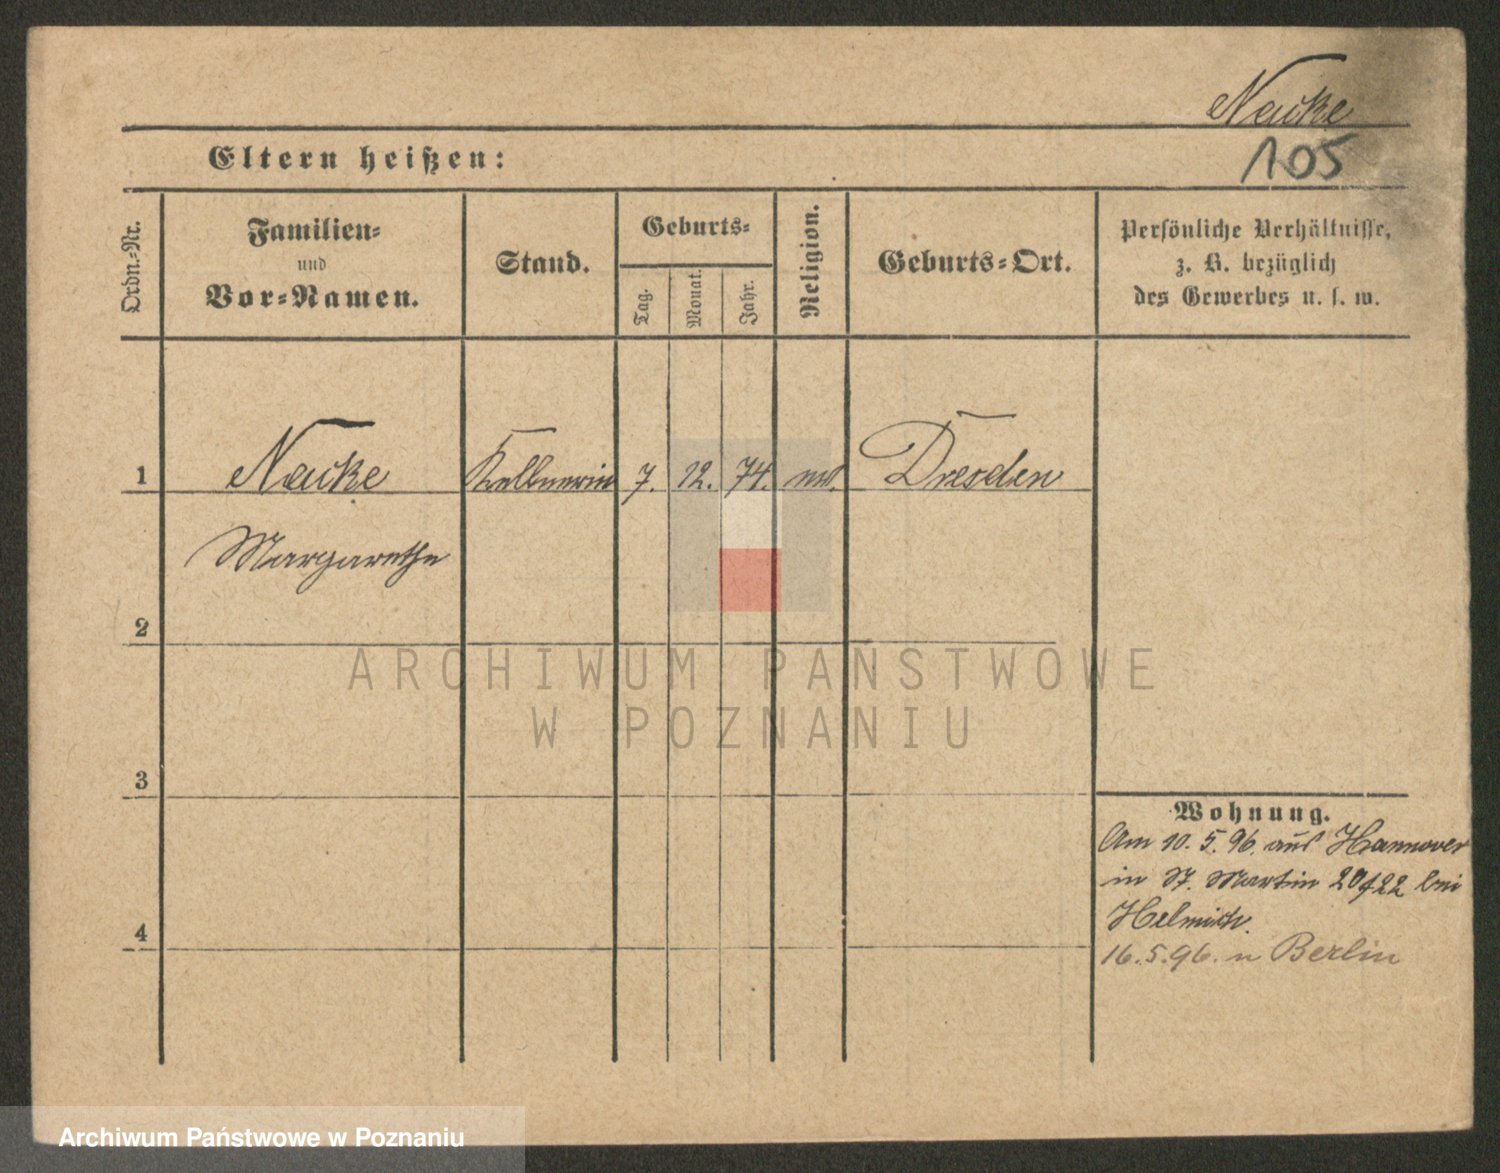 Nauke
105
Eltern heißen:
Ordn.-Nr.
Familien-
und
Vor-Namen.
Stand.
Geburts-
Tag.
Monat.
Jahr.
Religion.
Geburts-Ort.
Persönliche Verhältnisse,
z. B. bezüglich
des Gewerbes u. s. w.
1 Nauke Kellnerin 7. 12. 74. Dresden
Margarethe
2
3
4
Wohnung.
Am 10. 5. 96. aus Hannover
in St. Martin 20/22 bei
16.5.96. n Berlin
ARCHIWUM PAŃSTWOWE
W POZNANIU
Archiwum Państwowe w Poznaniu